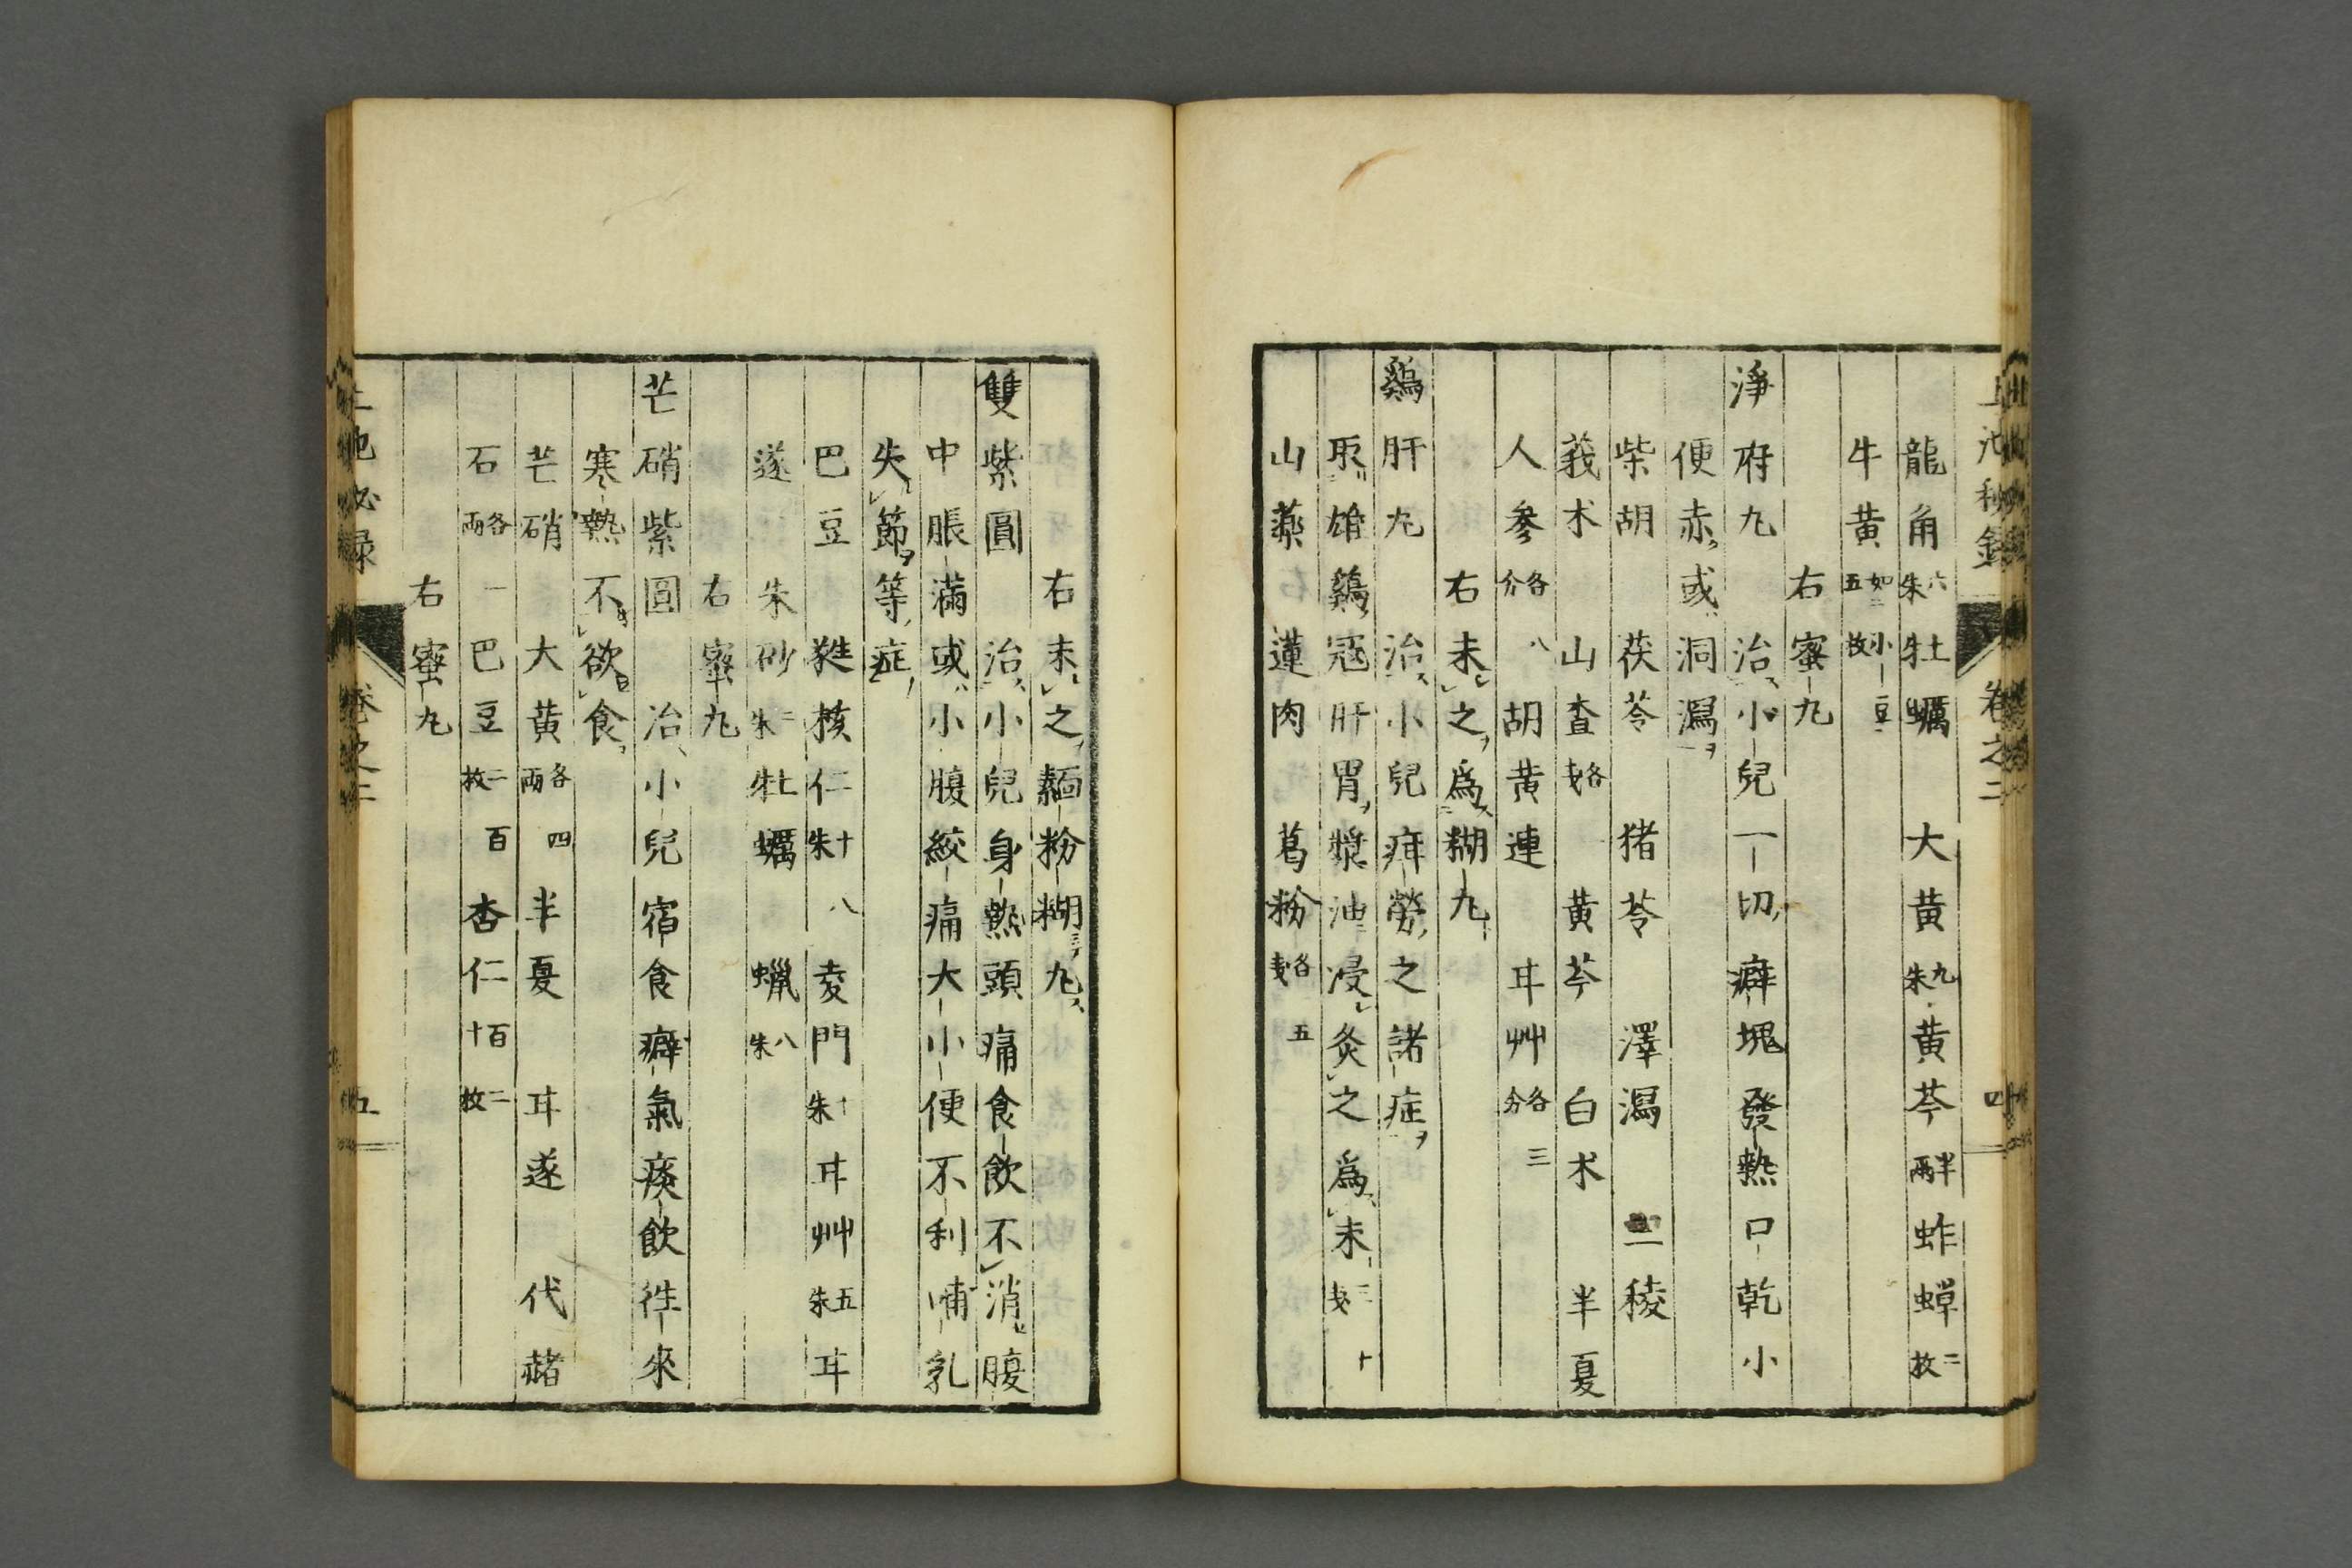 上池秘録 卷之二 四
龍角六朱 牡蠣 大黄九朱 黄芩半兩 蚱蟬二枚
牛黄如小豆五枚
右蜜丸
淨府丸 治小兒一切癖塊發熱口乾小
便赤或洞瀉
柴胡 茯苓 猪苓 澤瀉 三稜
莪朮 山査各戔 黄芩 白朮 半夏
人參各八分 胡黄連 甘艸各三分
右末之爲糊丸
鷄肝丸 治小兒疳勞之諸症
取雄鷄冠肝胃漿油浸灸之爲末三十戔
山藥 蓮肉 葛粉各五戔
右末之麵粉糊丸
雙紫圓 治小兒身熱頭痛食飲不消腹
中脹滿或小腹絞痛大小便不利哺乳
失節等症
巴豆 蕤核仁十八朱 麦門十朱 甘艸五朱 甘
遂 朱砂二朱 牡蠣 蠟八朱
右蜜丸
芒硝紫圓 治小兒宿食癖氣痰飲往來
寒熱不欲食
芒硝 大黄各四兩 半夏 甘遂 代赭
石各一兩 巴豆二百枚 杏仁百二十枚
右蜜丸
上池秘録 卷之二 五